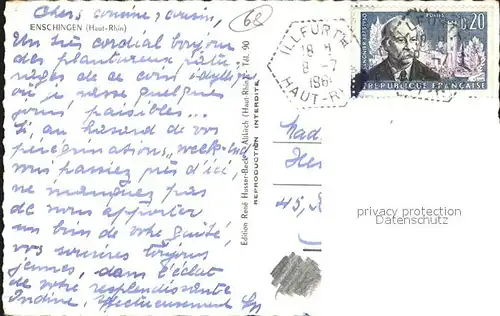 Chers cousine, cousin,
ENSCHINGEN (Haut-Rhin)
68
Un très cordial bonjour
des plantureux pâtu-
rages de ce coin idyllique
où je passe quelques
jours paisibles...
Si, au hasard de vos
pérégrinations "week-end"
vous passiez près d'ici,
ne manquez pas
de nous apporter
un brin de votre gaîté,
vos sourires toujours
jeunes, dans l'éclat
de votre resplendissante
Ondine. Affectueusement
Edition René Hasser-Beck - Altkirch (Haut-Rhin) - Tél. 90
REPRODUCTION INTERDITE
ILLFURTH
18 H
8 -7
HAUT-R
POSTES
0,20
RÉPUBLIQUE FRANÇAISE
Mad
45,
privacy protection
Datenschutz